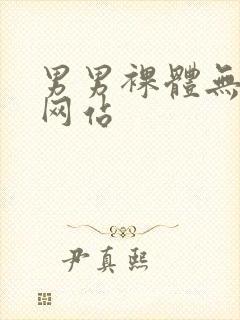 男男裸體無
网估
尹真熙